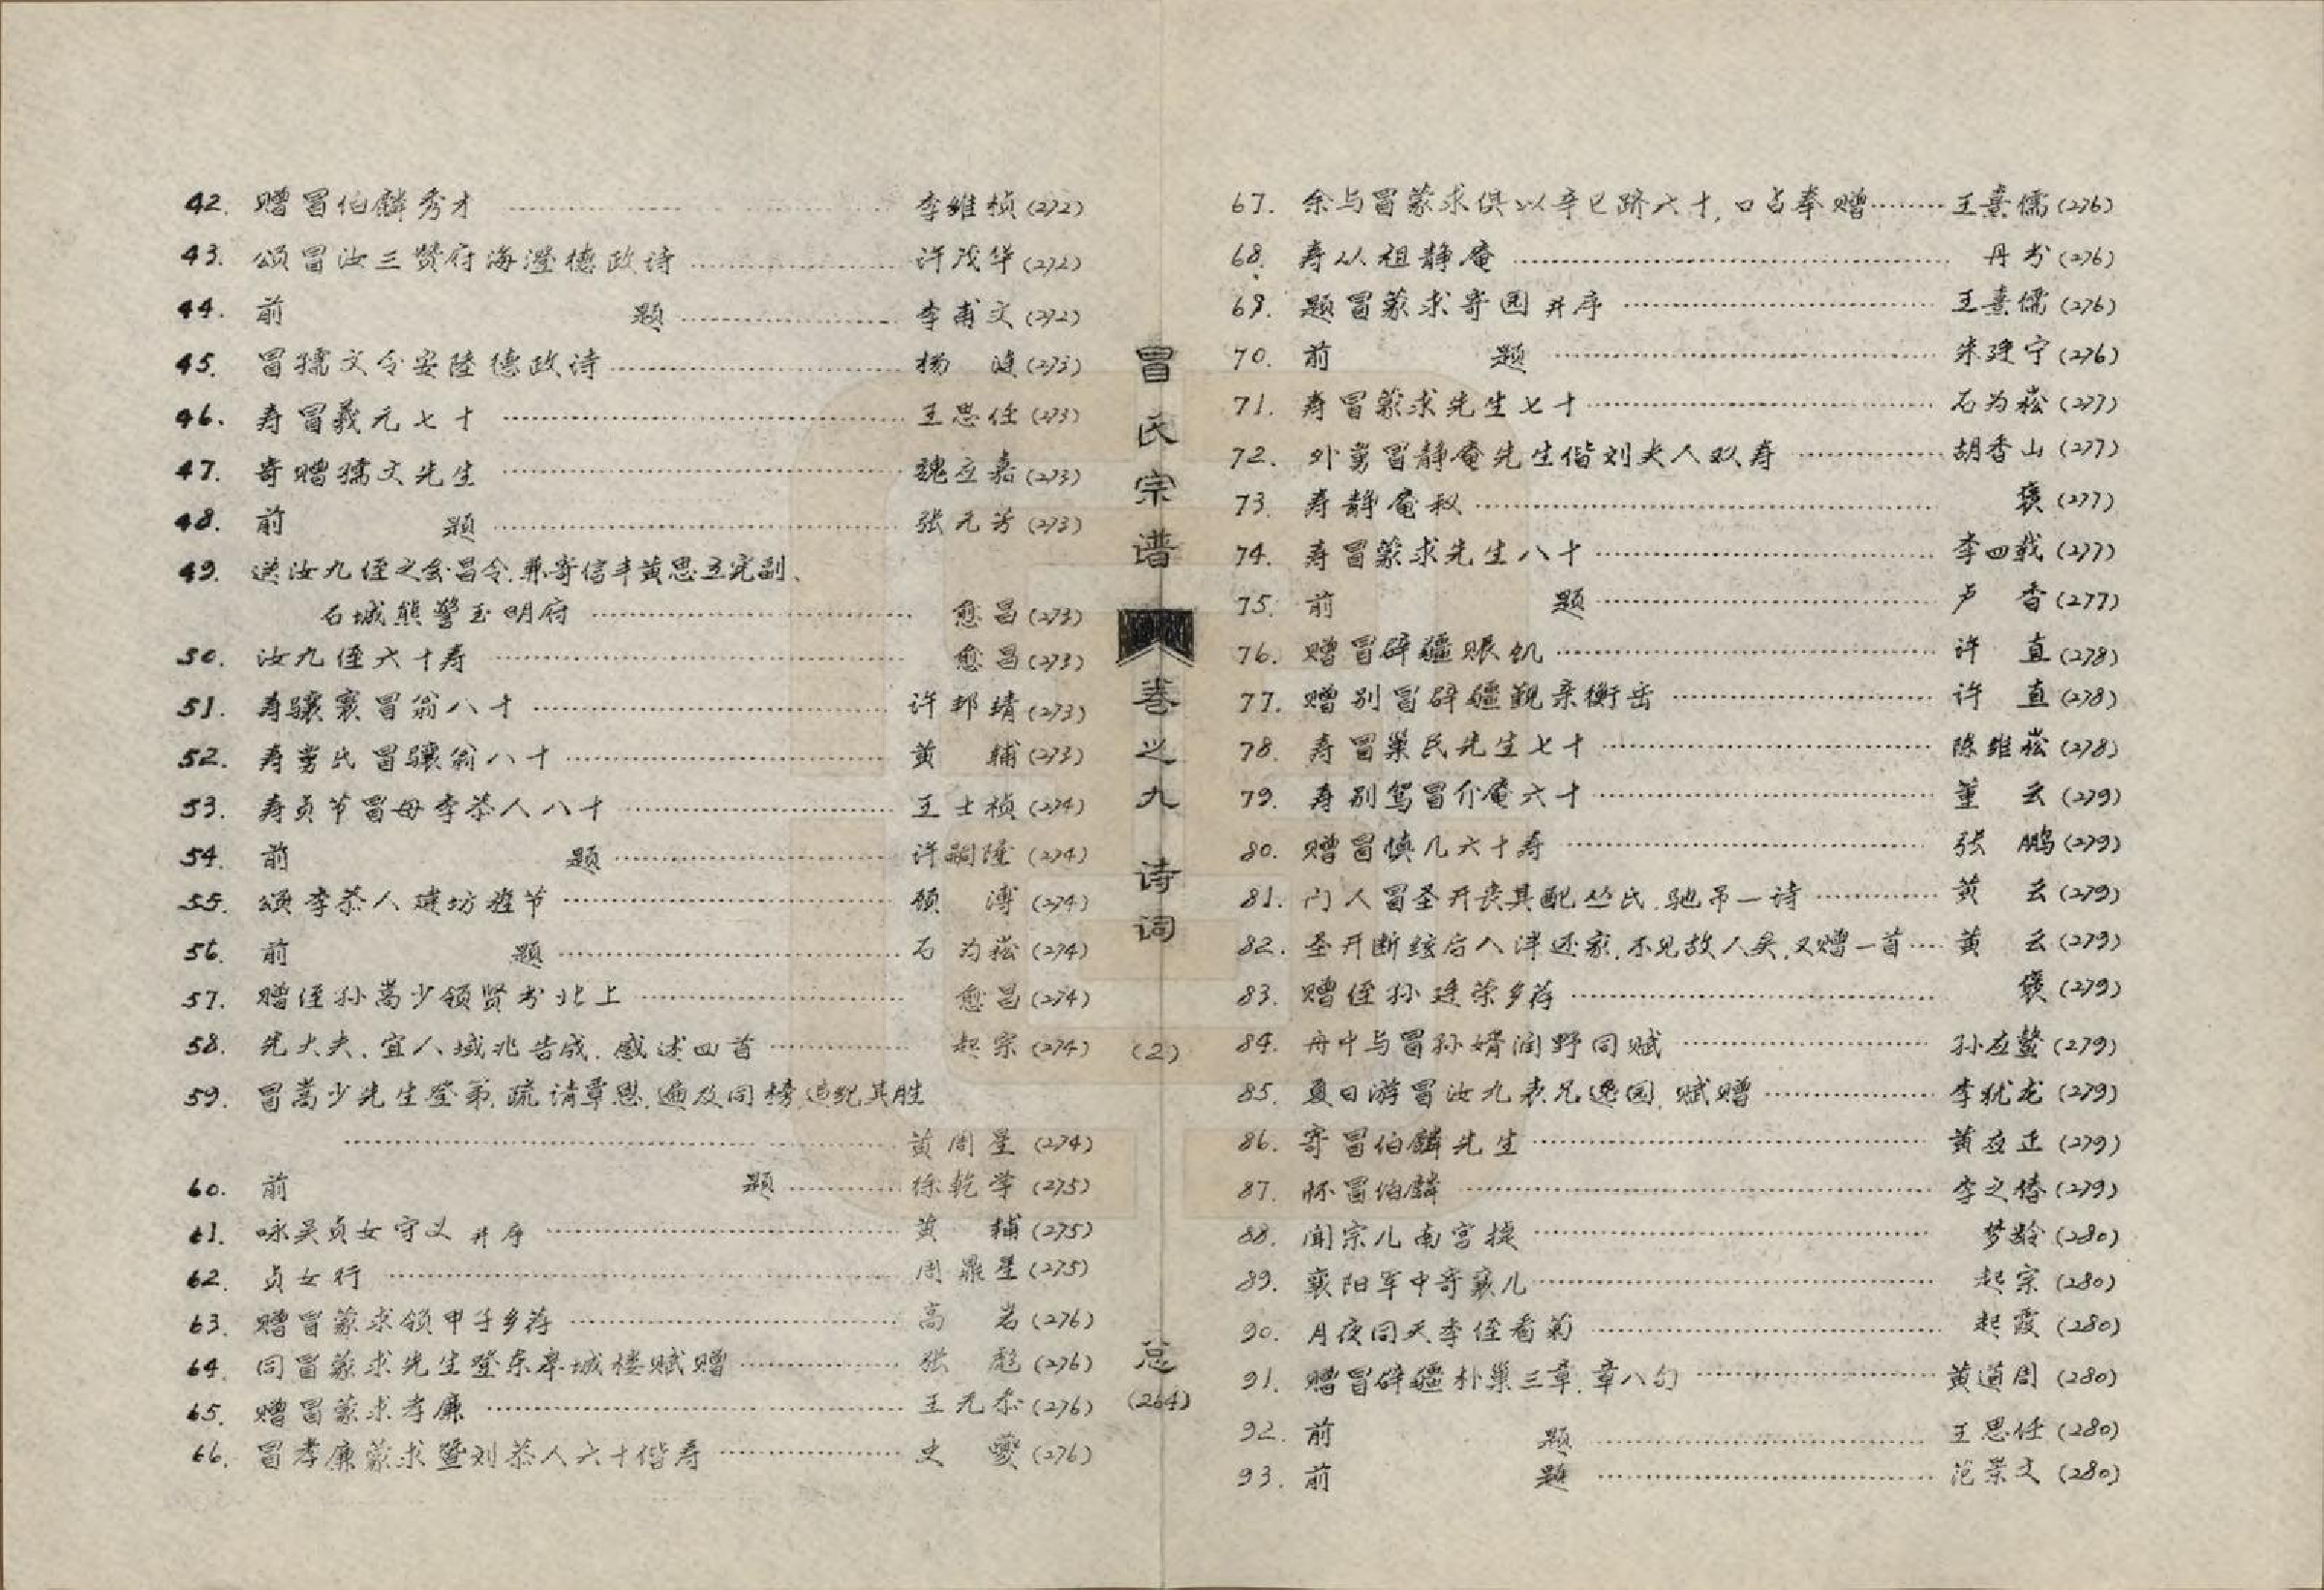 42. 赠冒伯麟秀才 李维桢(272)
43. 颂冒汝三赞府海澄德政诗 许茂华(272)
44. 前题 李甫文(272)
45. 冒孺文令安陆德政诗 杨涟(273)
46. 寿冒义元七十 王思任(273)
47. 寄赠孺文先生 魏应嘉(273)
48. 前题 张元芳(273)
49. 送汝九侄之会昌令.兼寄信丰黄思立完副、
石城熊警玉明府 愈昌(273)
50. 汝九侄六十寿 愈昌(273)
51. 寿骧襄冒翁八十 许邦靖(273)
52. 寿舅氏冒骧翁八十 黄辅(273)
53. 寿贞节冒母李恭人八十 王士祯(274)
54. 前题 许嗣隆(274)
55. 颂李恭人建坊旌节 顾溥(274)
56. 前题 石为崧(274)
57. 赠侄孙嵩少领贤书北上 愈昌(274)
58. 先大夫、宜人域兆告成.感述四首 起宗(274)
59. 冒嵩少先生登第.疏请覃恩.遍及同榜.追纪其胜
黄周星(274)
60. 前题 徐乾学(275)
61. 咏吴贞女守义 并序 黄辅(275)
62. 贞女行 周鼎星(275)
63. 赠冒蒙求领甲子乡荐 高岩(276)
64. 同冒蒙求先生登东皋城楼赋赠 张彪(276)
65. 赠冒蒙求孝廉 王元(276)
66. 冒孝廉蒙求暨刘恭人六十偕寿 史夔(276)
冒氏宗谱
卷之九 诗词
(2)
总
(264)
67. 余与冒蒙求俱以辛巳跻六十,口占奉赠 王熹儒(276)
68. 寿从祖静庵 丹书(276)
69. 题冒蒙求寄园并序 王熹儒(276)
70. 前题 朱建宁(276)
71. 寿冒蒙求先生七十 石为崧(277)
72. 外舅冒静庵先生偕刘夫人双寿 胡香山(277)
73. 寿静庵叔 褒(277)
74. 寿冒蒙求先生八十 李四载(277)
75. 前题 卢香(277)
76. 赠冒辟疆赈饥 许直(278)
77. 赠别冒辟疆觐亲衡岳 许直(278)
78. 寿冒巢民先生七十 陈维崧(278)
79. 寿别驾冒介庵六十 董云(279)
80. 赠冒慎几六十寿 张鹏(279)
81. 门人冒圣开丧其配丛氏.驰吊一诗 黄云(279)
82. 圣开断弦后入泮还家.不见故人矣.又赠一首 黄云(279)
83. 赠侄孙建荣乡荐 褒(279)
84. 舟中与冒孙婿润野同赋 孙应鳌(279)
85. 夏日游冒汝九表兄逸园.赋赠 李犹龙(279)
86. 寄冒伯麟先生 黄应正(279)
87. 怀冒伯麟 李之椿(279)
88. 闻宗儿南宫捷 梦龄(280)
89. 襄阳军中寄襄儿 起宗(280)
90. 月夜同天季侄看菊 起霞(280)
91. 赠冒辟疆朴巢三章.章八句 黄道周(280)
92. 前题 王思任(280)
93. 前题 范景文(280)